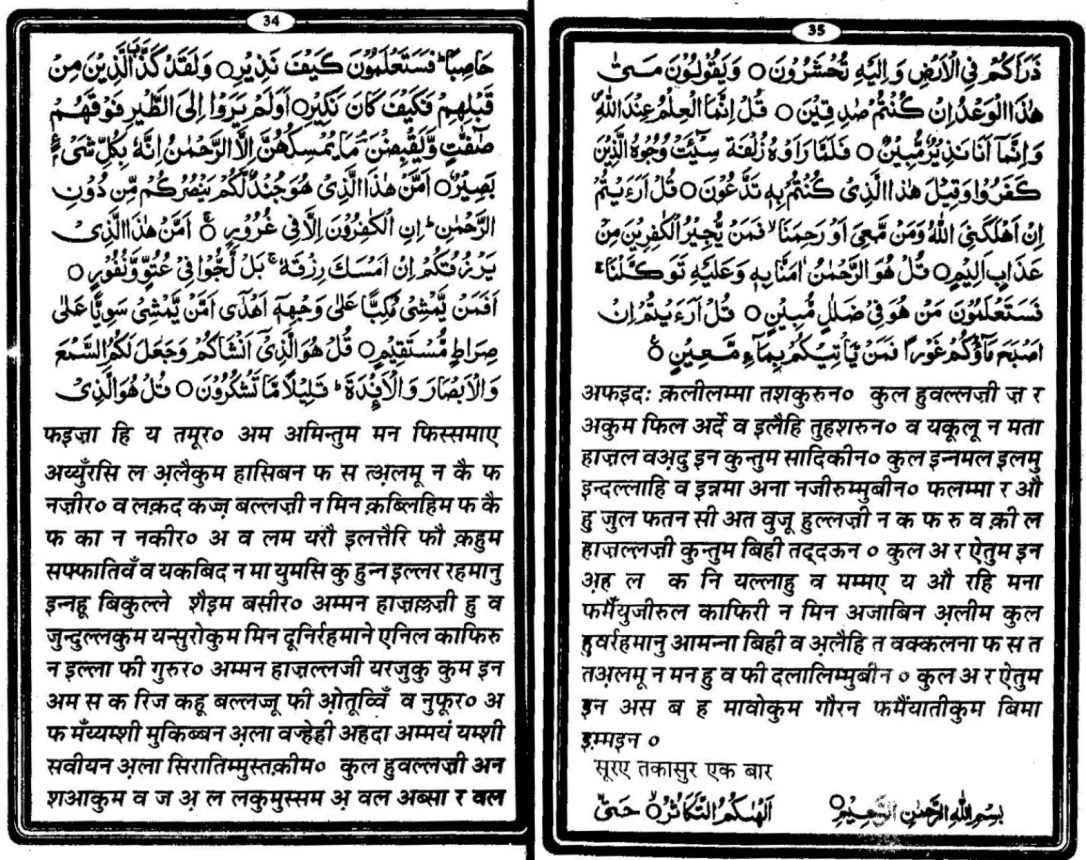 34
حَاصِبًا ؕ فَسَتَعْلَمُوْنَ كَيْفَ نَذِيْرِ ○ وَلَقَدْ كَذَّبَ الَّذِيْنَ مِنْ
قَبْلِهِمْ فَكَيْفَ كَانَ نَكِيْرِ ○ اَوَلَمْ يَرَوْا اِلَى الطَّيْرِ فَوْقَهُمْ
صٰٓفّٰتٍ وَّيَقْبِضْنَ مَا يُمْسِكُهُنَّ اِلَّا الرَّحْمٰنُ اِنَّهٗ بِكُلِّ شَیْءٍۭ
بَصِيْرٌ ○ اَمَّنْ هٰذَا الَّذِیْ هُوَ جُنْدٌ لَّكُمْ يَنْصُرُكُمْ مِّنْ دُوْنِ
الرَّحْمٰنِ ؕ اِنِ الْكٰفِرُوْنَ اِلَّا فِیْ غُرُوْرٍ ○ۚ اَمَّنْ هٰذَا الَّذِیْ
يَرْزُقُكُمْ اِنْ اَمْسَكَ رِزْقَهٗ ۚ بَلْ لَّجُّوْا فِیْ عُتُوٍّ وَّنُفُوْرٍ ○
اَفَمَنْ يَّمْشِیْ مُكِبًّا عَلٰی وَجْهِهٖۤ اَهْدٰۤی اَمَّنْ يَّمْشِیْ سَوِيًّا عَلٰی
صِرَاطٍ مُّسْتَقِيْمٍ ○ قُلْ هُوَ الَّذِیْۤ اَنْشَاَكُمْ وَجَعَلَ لَكُمُ السَّمْعَ
وَالْاَبْصَارَ وَالْاَفْـِٕدَةَ ؕ قَلِيْلًا مَّا تَشْكُرُوْنَ ○ قُلْ هُوَ الَّذِیْ
फइज़ा हि य तमूर० अम अमिन्तुम मन फिस्समाए
अय्युँरसि ल अ़लैकुम हासिबन फ स त्अ़लमू न कै फ
नज़ीर० व लक़द कज्ज़ बल्लज़ी न मिन क़ब्लिहिम फ कै
फ का न नकीर० अ व लम यरौ इलत्तैरि फौ क़हुम
सफ्फातिवँ व यकबिद न मा युमसि कु हुन्न इल्लर रहमानु
इन्नहू बिकुल्ले शैइम बसीर० अम्मन हाज़ल्लज़ी हु व
जुन्दुल्लकुम यन्सुरोकुम मिन दूनिर्रहमाने एनिल काफिरु
न इल्ला फी गुरुर० अम्मन हाज़ल्लजी यरजुकु कुम इन
अम स क रिज कहू बल्लज्जू फी ओ़तूव्विँ व नुफूर० अ
फ मँय्यम्शी मुकिब्बन अ़ला वज्हेही अहदा अम्मयं यम्शी
सवीयन अ़ला सिरातिम्मुस्तक़ीम० कुल हुवल्लज़ी अन
शआकुम व ज अ़ ल लकुमुस्सम अ़ वल अब्सा र वल
35
ذَرَاَكُمْ فِی الْاَرْضِ وَاِلَيْهِ تُحْشَرُوْنَ ○ وَيَقُوْلُوْنَ مَتٰی
هٰذَا الْوَعْدُ اِنْ كُنْتُمْ صٰدِقِيْنَ ○ قُلْ اِنَّمَا الْعِلْمُ عِنْدَ اللّٰهِ
وَاِنَّمَاۤ اَنَا نَذِيْرٌ مُّبِيْنٌ ○ فَلَمَّا رَاَوْهُ زُلْفَةً سِيْٓـَٔتْ وُجُوْهُ الَّذِيْنَ
كَفَرُوْا وَقِيْلَ هٰذَا الَّذِیْ كُنْتُمْ بِهٖ تَدَّعُوْنَ ○ قُلْ اَرَءَيْتُمْ
اِنْ اَهْلَكَنِیَ اللّٰهُ وَمَنْ مَّعِیَ اَوْ رَحِمَنَا ۙ فَمَنْ يُّجِيْرُ الْكٰفِرِيْنَ مِنْ
عَذَابٍ اَلِيْمٍ ○ قُلْ هُوَ الرَّحْمٰنُ اٰمَنَّا بِهٖ وَعَلَيْهِ تَوَكَّلْنَا ۚ
فَسَتَعْلَمُوْنَ مَنْ هُوَ فِیْ ضَلٰلٍ مُّبِيْنٍ ○ قُلْ اَرَءَيْتُمْ اِنْ
اَصْبَحَ مَآؤُكُمْ غَوْرًا فَمَنْ يَّاْتِيْكُمْ بِمَآءٍ مَّعِيْنٍ ○
अफइदः क़लीलम्मा तशकुरुन० कुल हुवल्लज़ी ज़ र
अकुम फिल अर्दे व इलैहि तुहशरुन० व यकूलू न मता
हाज़ल वअ़दु इन कुन्तुम सादिकीन० कुल इन्नमल इलमु
इन्दल्लाहि व इन्नमा अना नजीरुम्मुबीन० फलम्मा र औ
हु जुल फतन सी अत वुजू हुल्लज़ी न क फ रु व क़ी ल
हाज़ल्लज़ी कुन्तुम बिही तद्दऊन ० कुल अ र ऐतुम इन
अ़ह ल क नि यल्लाहु व मम्मए य औ रहि मना
फमैंयुजीरुल काफिरी न मिन अजाबिन अ़लीम कुल
हुवर्रहमानु आमन्ना बिही व अ़लैहि त वक्कलना फ स त
तअ़लमू न मन हु व फी दलालिम्मुबीन ० कुल अ र ऐतुम
इन अस ब ह मावोकुम गौरन फमैंयातीकुम बिमा
इ़म्मइन ०
सूरए तकासुर एक बार
بِسْمِ اللّٰهِ الرَّحْمٰنِ الرَّحِيْمِ ○ اَلْهٰكُمُ التَّكَاثُرُ ○ۙ حَتّٰی